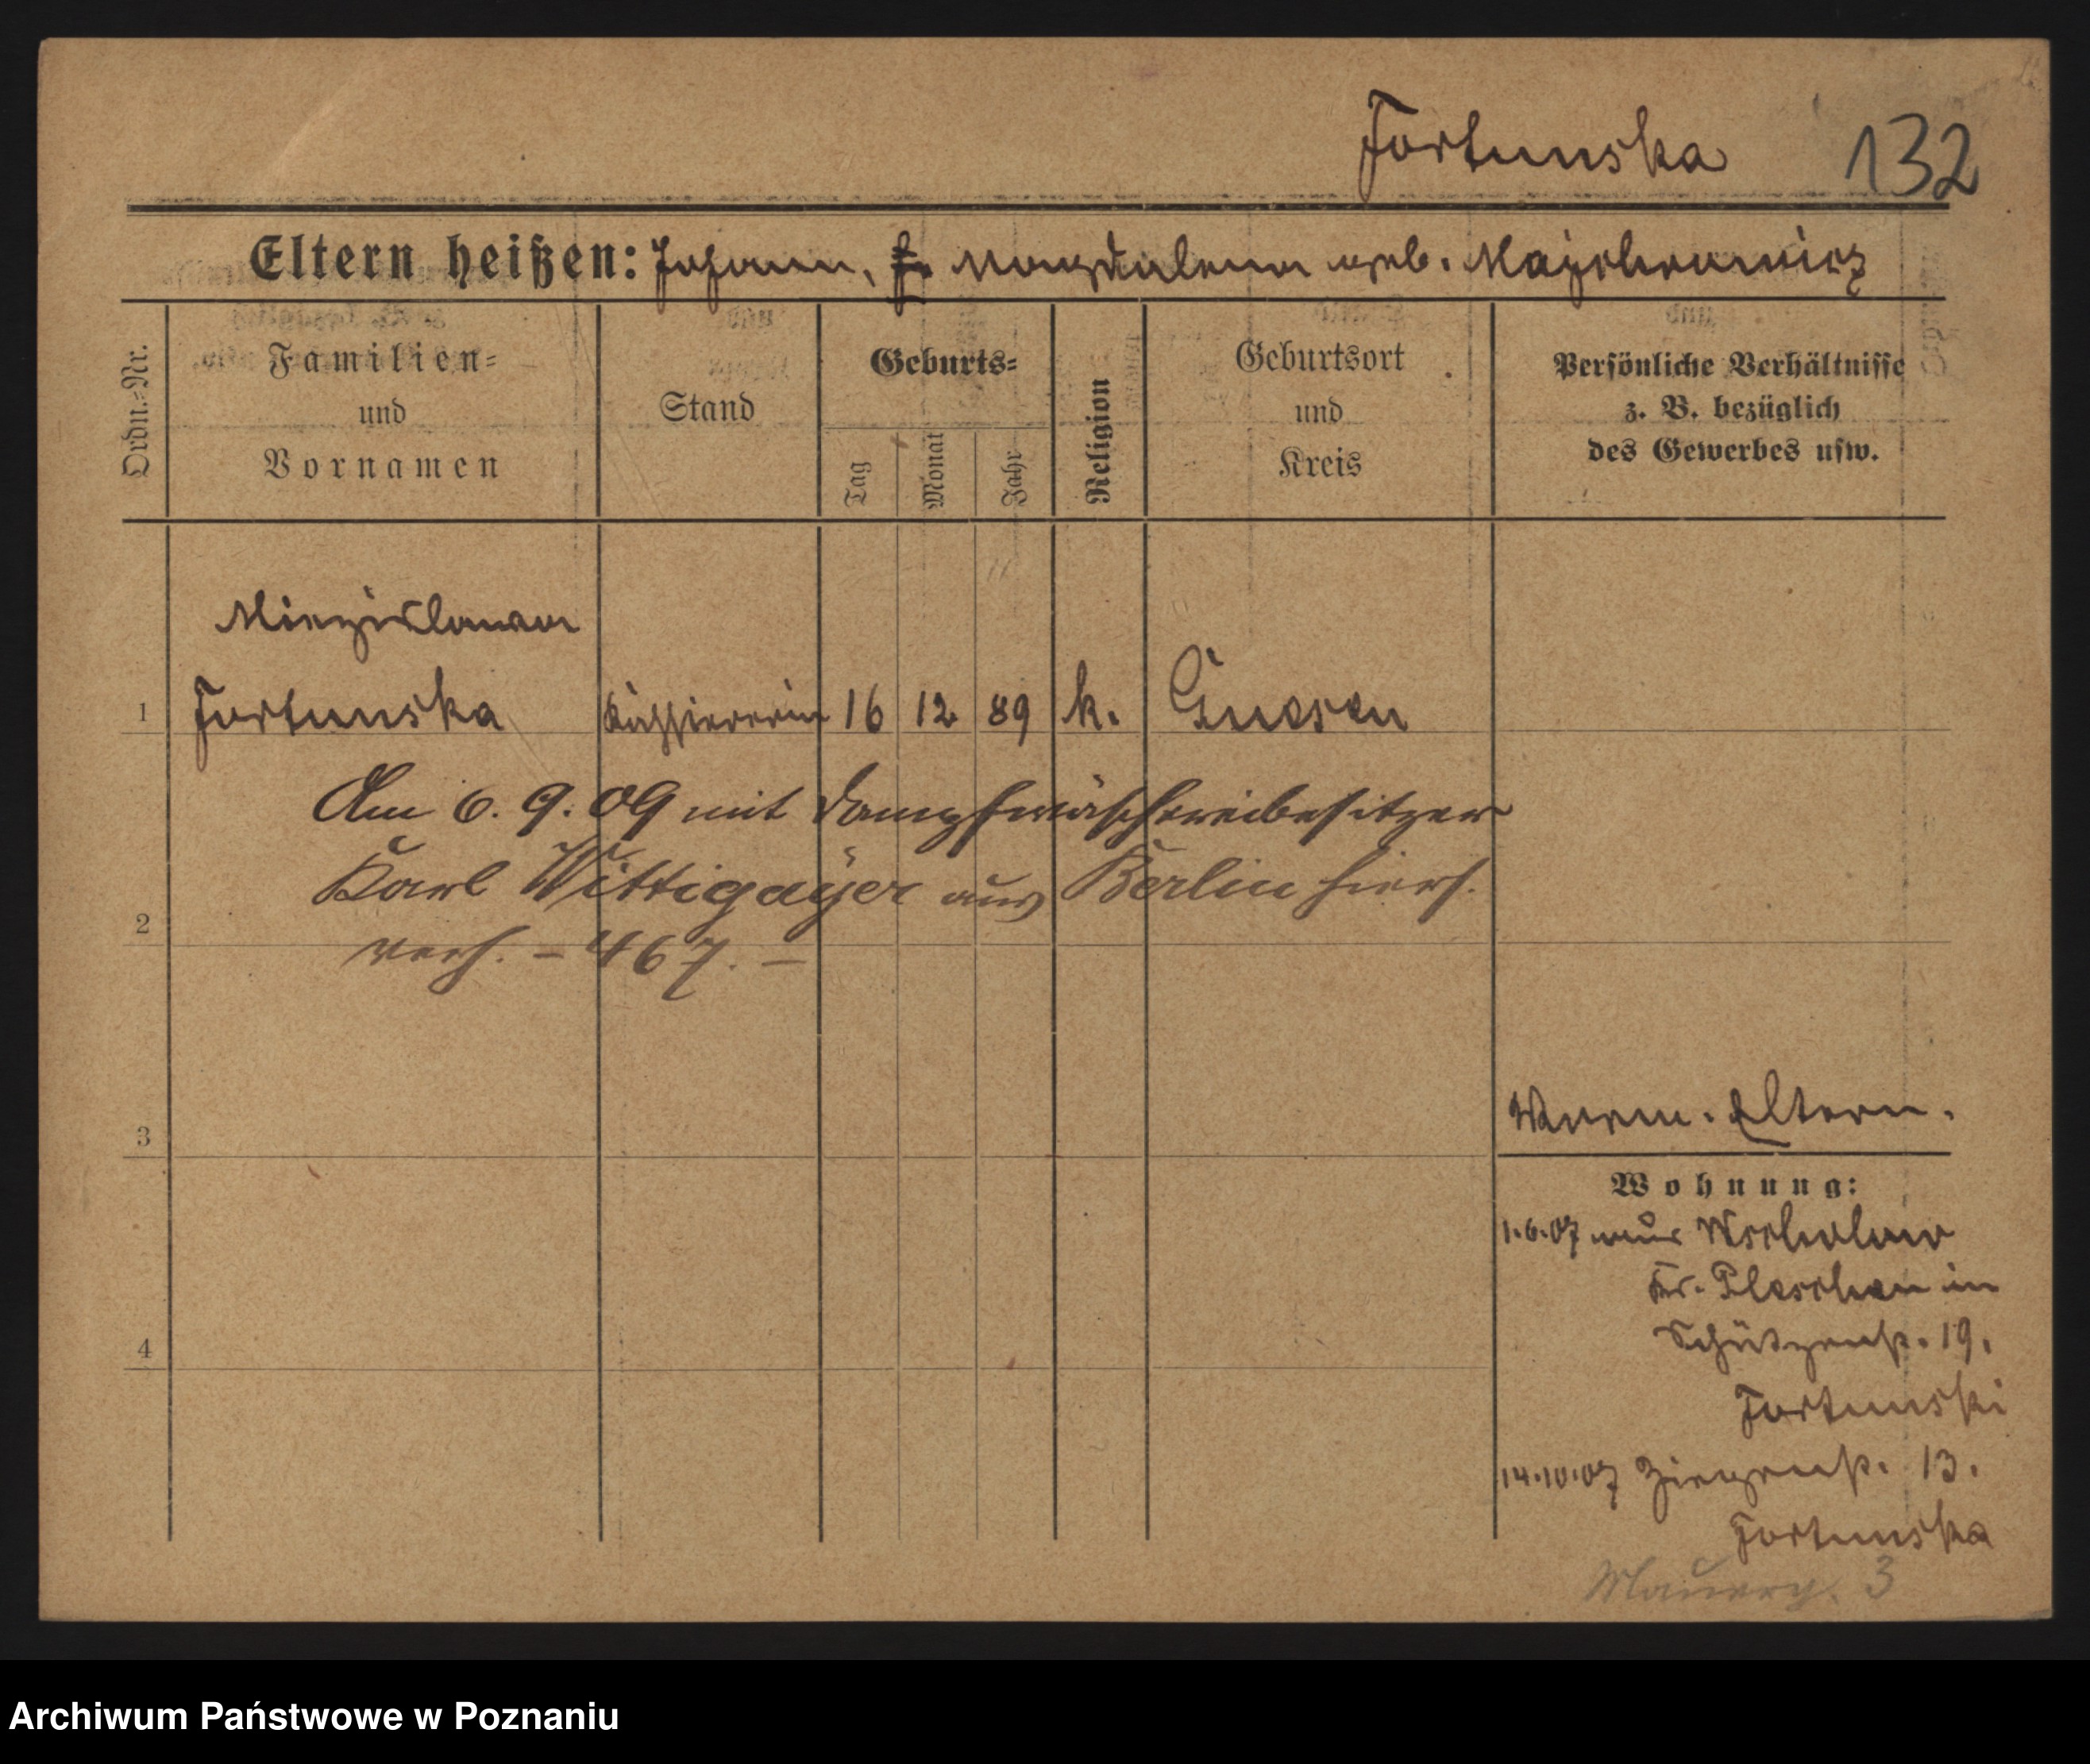 Fortunska 132
Eltern heißen: Johann, Magdalena geb. Majchrowicz
Ordn.-Nr.
Familien-
und
Vornamen
Stand
Geburts-
Tag
Monat
Jahr
Religion
Geburtsort
und
Kreis
Persönliche Verhältnisse
z. B. bezüglich
des Gewerbes usw.
Miezislawa
1 Fortunska Kassiererin 16 12 89 k. Gnesen
Am 6. 9. 09 mit Dampfwäschereibesitzer
Karl Wittigayer aus Berlin hiers.
2
verh. – 467. –
3
Eltern.
Wohnung:
1.6.07 aus
Kr. Pleschen in
4
Schützenstr. 19.
Fortunski
14.10.07 Ziegenstr. 13.
Fortunska
Mauerg. 3
Archiwum Państwowe w Poznaniu